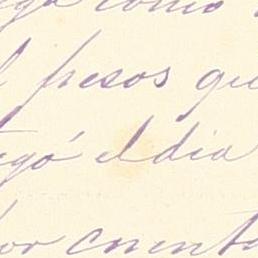 como
pesos que
el dia
por cuenta